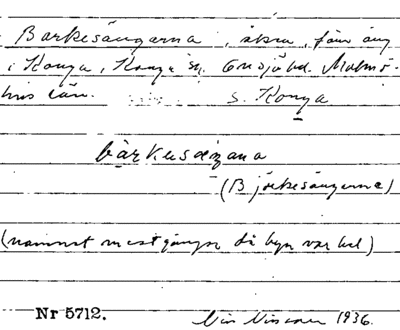 Barkesängarna, åkra, förr äng
i Konga, Konga sn, Onsjö hd. Malmö-
hus län. s. Konga
bàrkesäŋana
(Björkesängarna)
(namnet mest gängse då byn var hel)
Nr 5712. 1936.